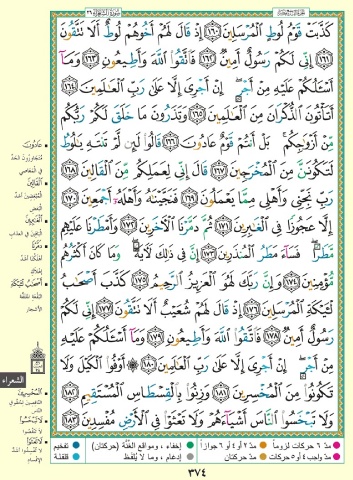 كَذَّبَتْ قَوْمُ لُوطٍ الْمُرْسَلِينَ ١٦٠ إِذْ قَالَ لَهُمْ أَخُوهُمْ لُوطٌ أَلَا تَتَّقُونَ
١٦١ إِنِّي لَكُمْ رَسُولٌ أَمِينٌ ١٦٢ فَاتَّقُوا اللَّهَ وَأَطِيعُونِ ١٦٣ وَمَا
أَسْأَلُكُمْ عَلَيْهِ مِنْ أَجْرٍ إِنْ أَجْرِيَ إِلَّا عَلَى رَبِّ الْعَالَمِينَ ١٦٤
أَتَأْتُونَ الذُّكْرَانَ مِنَ الْعَالَمِينَ ١٦٥ وَتَذَرُونَ مَا خَلَقَ لَكُمْ رَبُّكُم
مِّنْ أَزْوَاجِكُم بَلْ أَنتُمْ قَوْمٌ عَادُونَ ١٦٦ قَالُوا لَئِن لَّمْ تَنتَهِ يَا لُوطُ
لَتَكُونَنَّ مِنَ الْمُخْرَجِينَ ١٦٧ قَالَ إِنِّي لِعَمَلِكُم مِّنَ الْقَالِينَ ١٦٨
رَبِّ نَجِّنِي وَأَهْلِي مِمَّا يَعْمَلُونَ ١٦٩ فَنَجَّيْنَاهُ وَأَهْلَهُ أَجْمَعِينَ ١٧٠
إِلَّا عَجُوزًا فِي الْغَابِرِينَ ١٧١ ثُمَّ دَمَّرْنَا الْآخَرِينَ ١٧٢ وَأَمْطَرْنَا عَلَيْهِم
مَّطَرًا فَسَاءَ مَطَرُ الْمُنذَرِينَ ١٧٣ إِنَّ فِي ذَلِكَ لَآيَةً وَمَا كَانَ أَكْثَرُهُم
مُّؤْمِنِينَ ١٧٤ وَإِنَّ رَبَّكَ لَهُوَ الْعَزِيزُ الرَّحِيمُ ١٧٥ كَذَّبَ أَصْحَابُ
لْئَيْكَةِ الْمُرْسَلِينَ ١٧٦ إِذْ قَالَ لَهُمْ شُعَيْبٌ أَلَا تَتَّقُونَ ١٧٧ إِنِّي لَكُمْ
رَسُولٌ أَمِينٌ ١٧٨ فَاتَّقُوا اللَّهَ وَأَطِيعُونِ ١٧٩ وَمَا أَسْأَلُكُمْ عَلَيْهِ
مِنْ أَجْرٍ إِنْ أَجْرِيَ إِلَّا عَلَى رَبِّ الْعَالَمِينَ ١٨٠ أَوْفُوا الْكَيْلَ وَلَا
تَكُونُوا مِنَ الْمُخْسِرِينَ ١٨١ وَزِنُوا بِالْقِسْطَاسِ الْمُسْتَقِيمِ ١٨٢
وَلَا تَبْخَسُوا النَّاسَ أَشْيَاءَهُمْ وَلَا تَعْثَوْا فِي الْأَرْضِ مُفْسِدِينَ ١٨٣
عَادُونَ
الْقَالِينَ
الْغَابِرِينَ
دَمَّرْنَا
الشعراء
الْمُخْسِرِينَ
لَا تَبْخَسُوا
لَا تَعْثَوْا
مدّ ٦ حركات لزوماً
مدّ ٢ أو ٤ أو ٦ جوازاً
إخفاء، ومواقع الغُنَّة (حركتان)
تفخيم
مدّ واجب ٤ أو ٥ حركات
مدّ حركتان
إدغام، وما لا يُلفَظ
قلقلة
٣٧٤